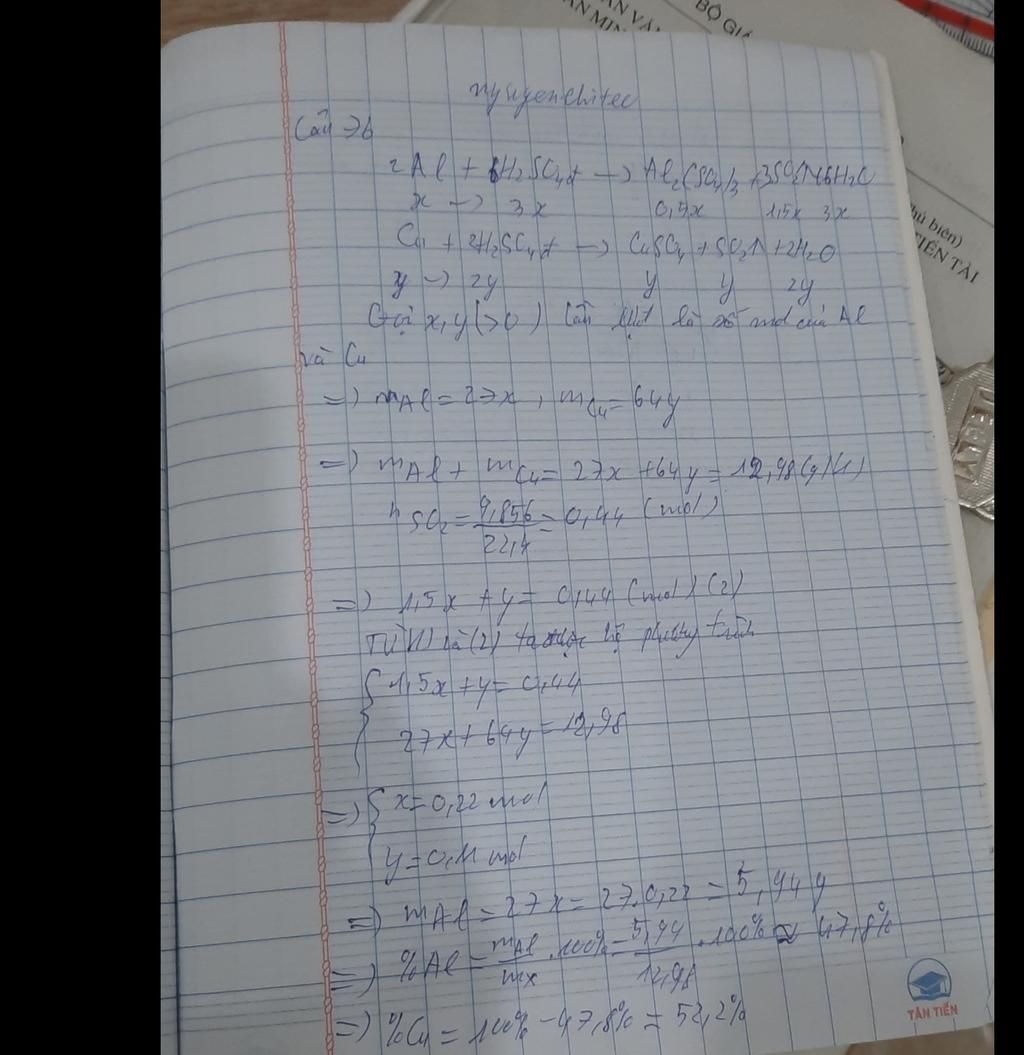 BỘ GIÁ
ẦN VĂ
ẦN MIN
hủ biên)
TIẾN TÀI
nguyenchitec
Câu 36
2Al + 6H₂SO₄đ → Al₂(SO₄)₃ + 3SO₂↑ + 6H₂O
x → 3x 0,5x 1,5x 3x
Cu + 2H₂SO₄đ → CuSO₄ + SO₂↑ + 2H₂O
y → 2y y y 2y
Gọi x, y (>0) lần lượt là số mol của Al
và Cu
=) mAl = 27x, mCu = 64y
=) mAl + mCu = 27x + 64y = 12,98 (g) (1)
nSO₂ = 9,856/22,4 = 0,44 (mol)
=) 1,5x + y = 0,44 (mol) (2)
Từ (1) và (2) ta được hệ phương trình
{ 1,5x + y = 0,44
27x + 64y = 12,98
=) { x = 0,22 mol
y = 0,11 mol
=) mAl = 27x = 27.0,22 = 5,94 g
=) %Al = mAl/mx .100% = 5,94/12,98 .100% ≈ 47,8%
=) %Cu = 100% - 47,8% = 52,2%
TÂN TIẾN